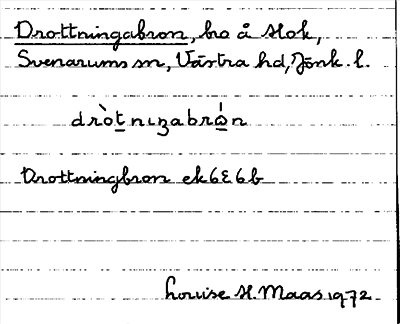 Drottningabron, bro å Hok,
Svenarums sn, Västra hd, Jönk. l.
dròt̲nıʒabró̲n
Drottningbron ek 6E 6b
Louise H. Maas 1972